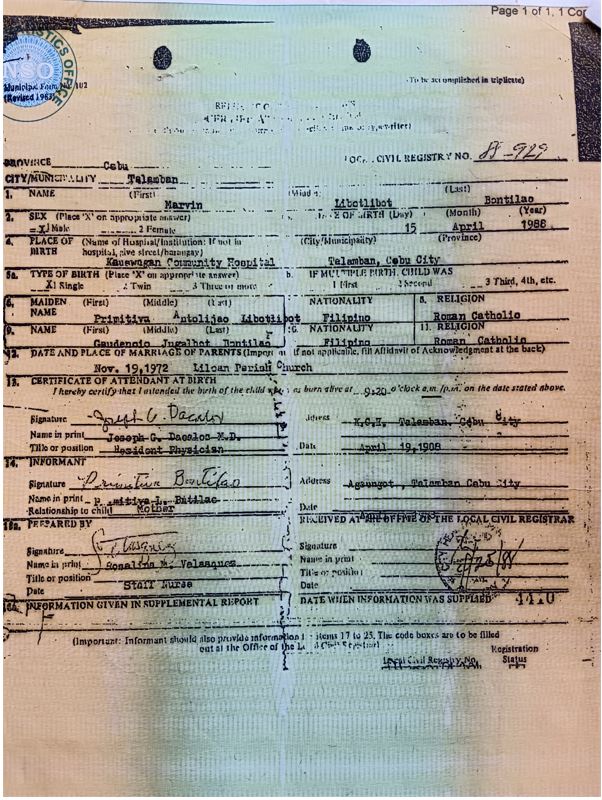 Page 1 of 1, 1 Cor
STICS OFFICE
NSO
Municipal Form No. 102
(Revised 1983)
(To be accomplished in triplicate)
PROVINCE Cebu
LOCAL CIVIL REGISTRY NO. 88-929
CITY/MUNICIPALITY Talamban
1. NAME (First) (Middle) (Last)
Marvin Libotlibot Bontilao
2. SEX (Place 'X' on appropriate answer) OF BIRTH (Day) (Month) (Year)
X 1 Male 2 Female 15 April 1988
4. PLACE OF BIRTH (Name of Hospital/Institution: If not in hospital, give street/barangay) (City/Municipality) (Province)
Kauswagan Community Hospital Talamban, Cebu City
5a. TYPE OF BIRTH (Place 'X' on appropriate answer) b. IF MULTIPLE BIRTH, CHILD WAS
X 1 Single 2 Twin 3 Three or more 1 First 2 Second 3 Third, 4th, etc.
6. MAIDEN NAME (First) (Middle) (Last) NATIONALITY 8. RELIGION
Primitiva Antolijao Libotlibot Filipino Roman Catholic
9. NAME (First) (Middle) (Last) 10. NATIONALITY 11. RELIGION
Gaudencio Jugalbot Bontilao Filipino Roman Catholic
12. DATE AND PLACE OF MARRIAGE OF PARENTS (Important if not applicable, fill Affidavit of Acknowledgment at the back)
Nov. 19,1972 Liloan Parish Church
13. CERTIFICATE OF ATTENDANT AT BIRTH
I hereby certify that I attended the birth of the child who was born alive at 9:20 o'clock a.m./p.m. on the date stated above.
Signature Joseph G. Dacalos Address K.C.H. Talamban, Cebu City
Name in print Joseph G. Dacalos M.D.
Title or position Resident Physician Date April 19,1908
14. INFORMANT
Signature Primitiva Bontilao Address Agsungot, Talamban Cebu City
Name in print
Relationship to child Mother Date
PREPARED BY RECEIVED AT THE OFFICE OF THE LOCAL CIVIL REGISTRAR
Signature Signature
Name in print Rosalina M. Velasquez Name in print
Title or position Staff Nurse Title or position
Date Date
INFORMATION GIVEN IN SUPPLEMENTAL REPORT DATE WHEN INFORMATION WAS SUPPLIED 4410
(Important: Informant should also provide information items 17 to 25. The code boxes are to be filled
out at the Office of the Local Civil Registrar)
Local Civil Registry No. Registration Status